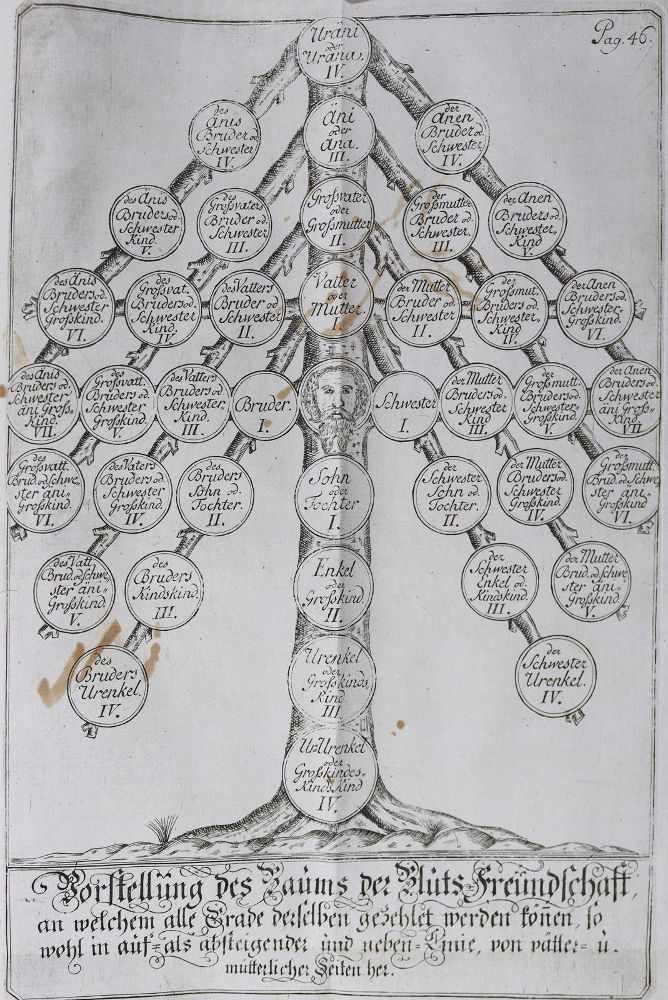 Pag. 46.
Uräni
oder
Urana.
IV.
des
Änis
Bruder od.
Schwester
IV.
Äni
oder
Ana.
III.
der
Anen
Bruder od.
Schwester
IV.
des Änis
Bruders od.
Schwester
Kind.
V.
des
Großvaters
Bruder od.
Schwester
III.
Großvater
oder
Großmutter
II.
der
Großmutter
Bruder od.
Schwester
III.
der Anen
Bruders od.
Schwester
Kind
V.
des Änis
Bruders od.
Schwester
Großkind.
VI.
des
Großvat.
Bruders od.
Schwester
Kind
IV.
des Vatters
Bruder od.
Schwester
II.
Vatter
oder
Mutter.
I.
der Mutter
Bruder od.
Schwester
II.
der
Großmut.
Bruders od.
Schwester
Kind
IV.
der Anen
Bruders od.
Schwester
Großkind.
VI.
des Anis
Bruders od.
Schwester
äni Groß=
Kind.
VII.
des
Großvatt.
Bruders od.
Schwester
Großkind.
V.
des Vatters
Bruders od.
Schwester
Kind.
III.
Bruder.
I.
Schwester
I.
der Mutter
Bruders od.
Schwester
Kind
III.
der
Großmutt.
Bruders od.
Schwester
Großkind.
V.
der Anen
Bruders od.
Schwester
ani Groß=
Kind.
VII
des
Großvatt.
Brud od schwe
ster ani=
Großkind.
VI.
des Vaters
Bruders od.
Schwester
Großkind.
IV.
des
Bruders
Sohn od.
Tochter.
II.
Sohn
oder
Tochter
I.
der
Schwester
Sohn od.
Tochter.
II.
der Mutter
Bruders od.
Schwester
Großkind
IV.
der
Großmutt.
Brud od schwe
ster ani=
Großkind.
VI.
des Vatt.
Brud. od schwe
ster ani=
Großkind.
V.
des
Bruders
Kindskind.
III.
Enkel
oder
Großkind.
II.
der
Schwester
Enkel od.
Kindskind.
III.
der Mutter
Brud. od schwe
ster ani=
Großkind.
V.
des
Bruders
Urenkel.
IV.
Urenkel
oder
Großkinds
Kind
III
der
Schwester
Urenkel.
IV.
UrUrenkel
oder
Großkindes=
Kinds Kind
IV.
Vorstellung des Baums der Bluts Freündschaft,
an welchem alle Grade derselben gezehlet werden können, so
wohl in auf= als absteigender und neben= Linie, von vätter= u.
mütterlicher Seiten her.